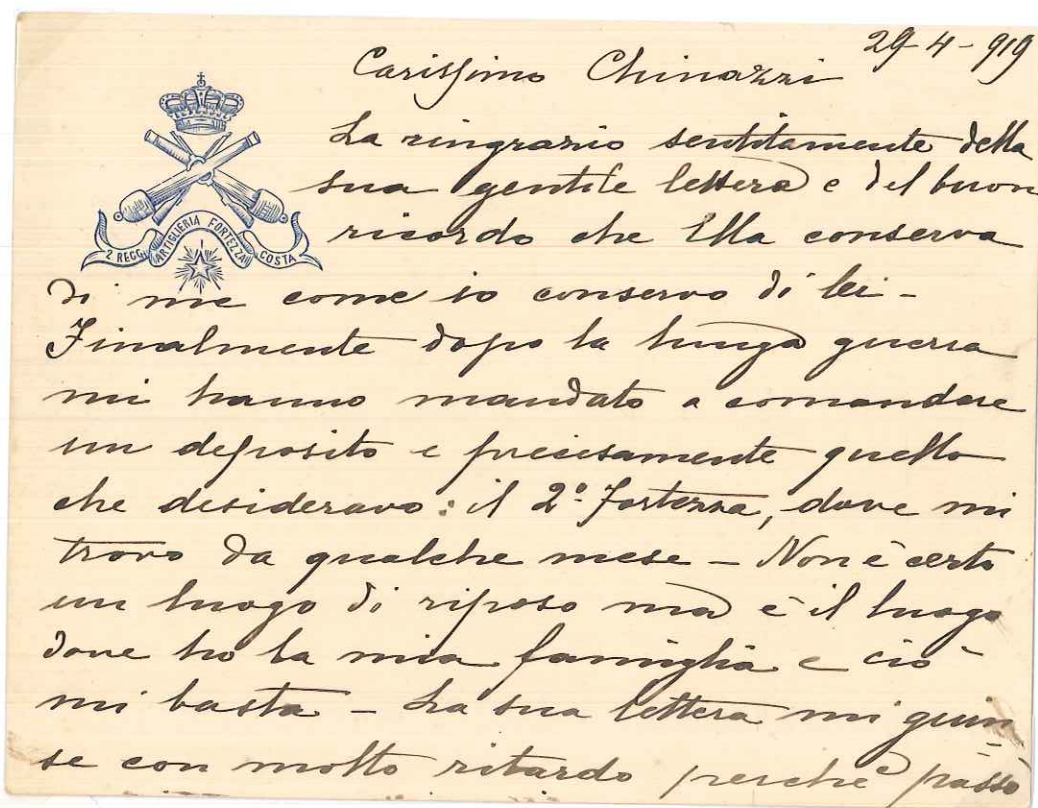 29-4-919
Carissimo Chinazzi
La ringrazio sentitamente della
sua gentile lettera e del buon
ricordo che Ella conserva
2 REGG. ARTIGLIERIA FORTEZZA COSTA
di me come io conservo di lei -
Finalmente dopo la lunga guerra
mi hanno mandato a comandare
un deposito e precisamente quello
che desideravo: il 2º fortezza, dove mi
trovo da qualche mese - Non è certo
un luogo di riposo ma è il luogo
dove ho la mia famiglia e ciò
mi basta - La sua lettera mi giun=
se con molto ritardo perchè passò